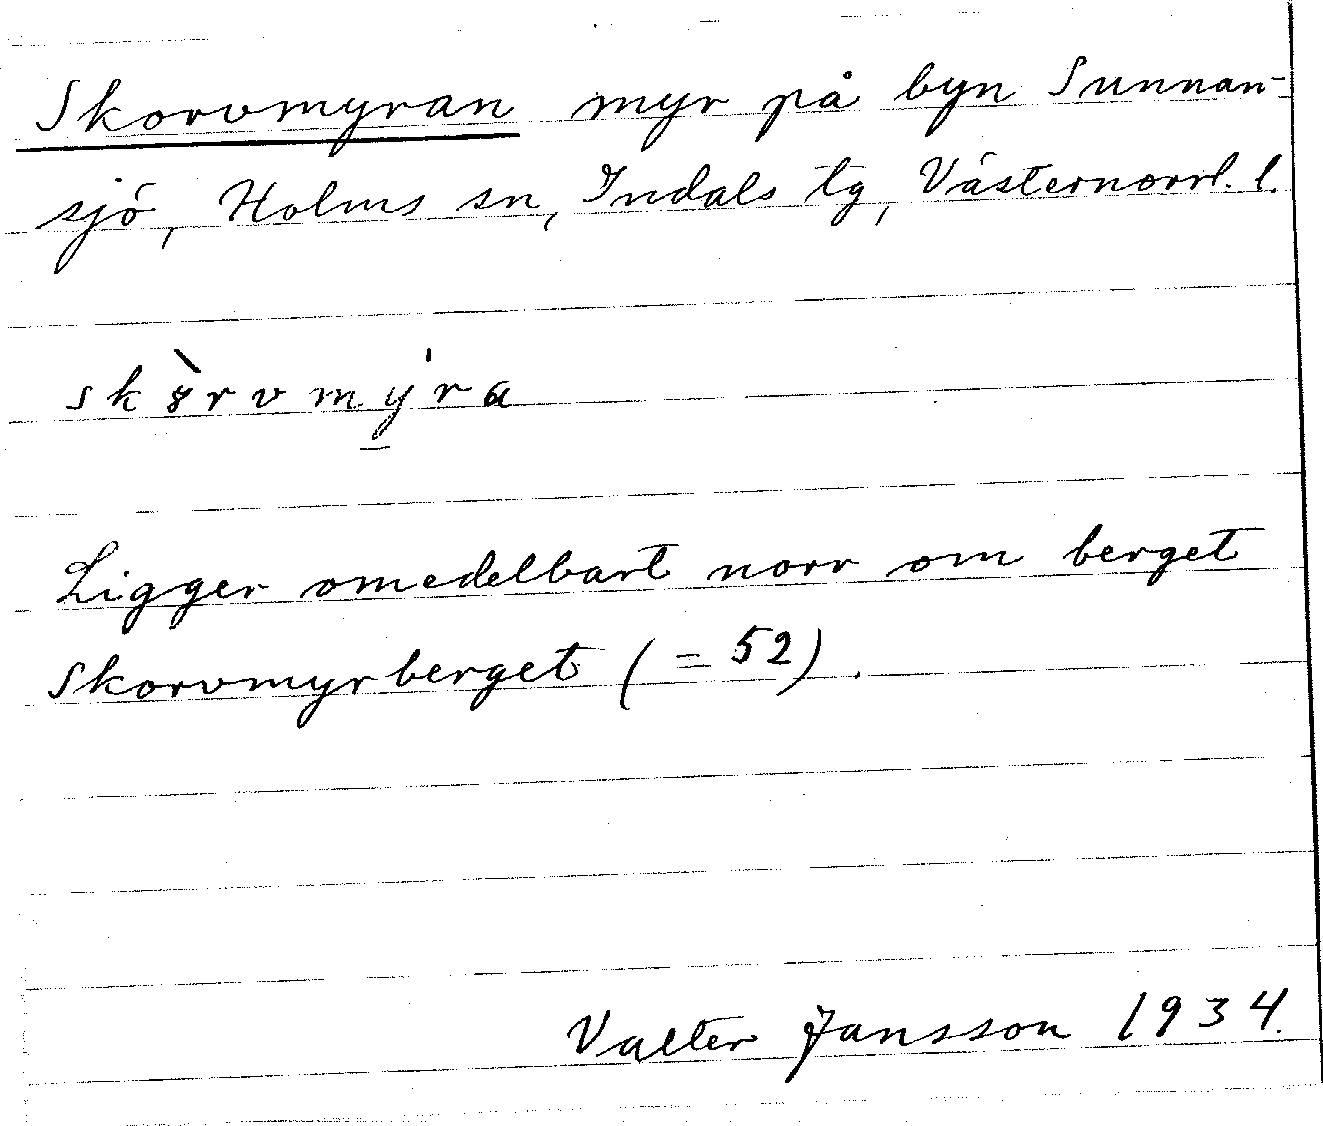 Skorvmyran myr på byn Sunnan-
sjö, Holms sn, Indals tg, Västernorrl. l.
skὸrvmy̠´ra
Ligger omedelbart norr om berget
Skorvmyrberget (= 52).
Valter Jansson 1934.